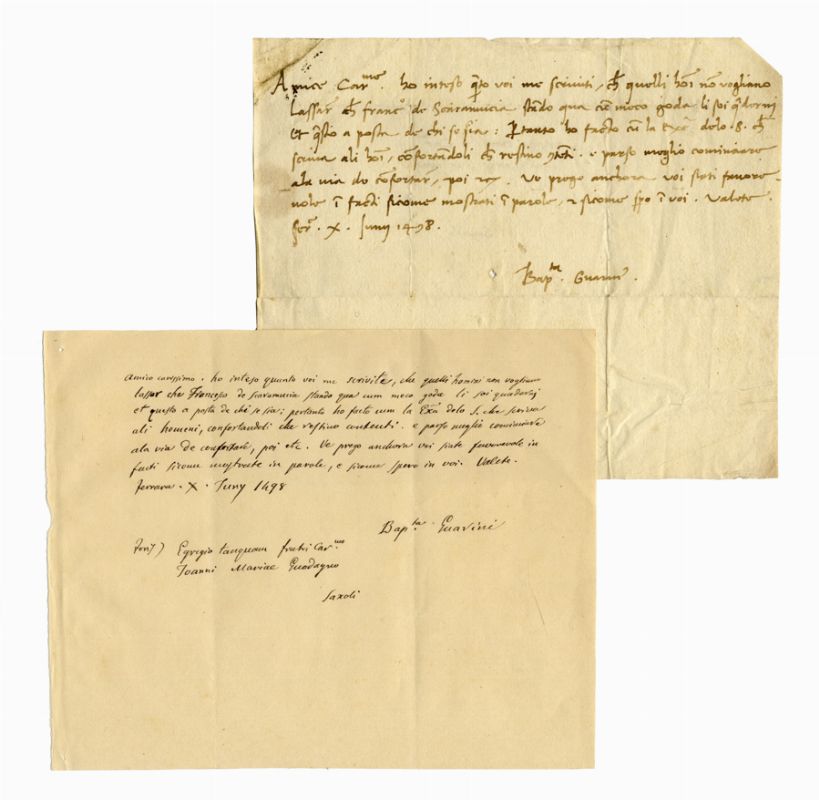 Amice Car.me ho inteso q̄to voi me scriviti, ch̄ quelli hōi nō vogliano
lassar ch̄ franc.o de Scaramucia stādo qua cū meco goda li soi q̄derni
et q̄sto a posta de chi se sia: ꝑtanto ho facto cū la Exc.a delo .S. ch̄
scriva ali hōi, cōfortādoli ch̄ restino 9tēti. e parso meglio cominciare
ala via de cōfortar, poi Ve prego anchora voi siati favore
vole ī facti sicome mostrati ī parole, 2 sicome spo ī voi. Valete.
Fer. X. Junij 1498.
Bap.ta Guarin.
Amico carissimo. ho inteso quanto voi me scrivite, che quelli homini non vogliano
lassar che Francesco de Scaramucia stando qua cum meco goda li soi quaderni
et questo a posta de chi se sia; pertanto ho facto cum la Exa delo S. che scriva
ali homeni, confortandoli che restino contenti. e parso meglio cominciare
ala via de confortare, poi etc. Ve prego anchora voi siate favorevole in
facti sicome mostrate in parole, e sicome spero in voi. Valete.
Ferrara. X. Juny 1498
Bap.ta Guarini
Egregio tanquam fratri Car.mo
Joanni Mariae Guadagno
Saxoli